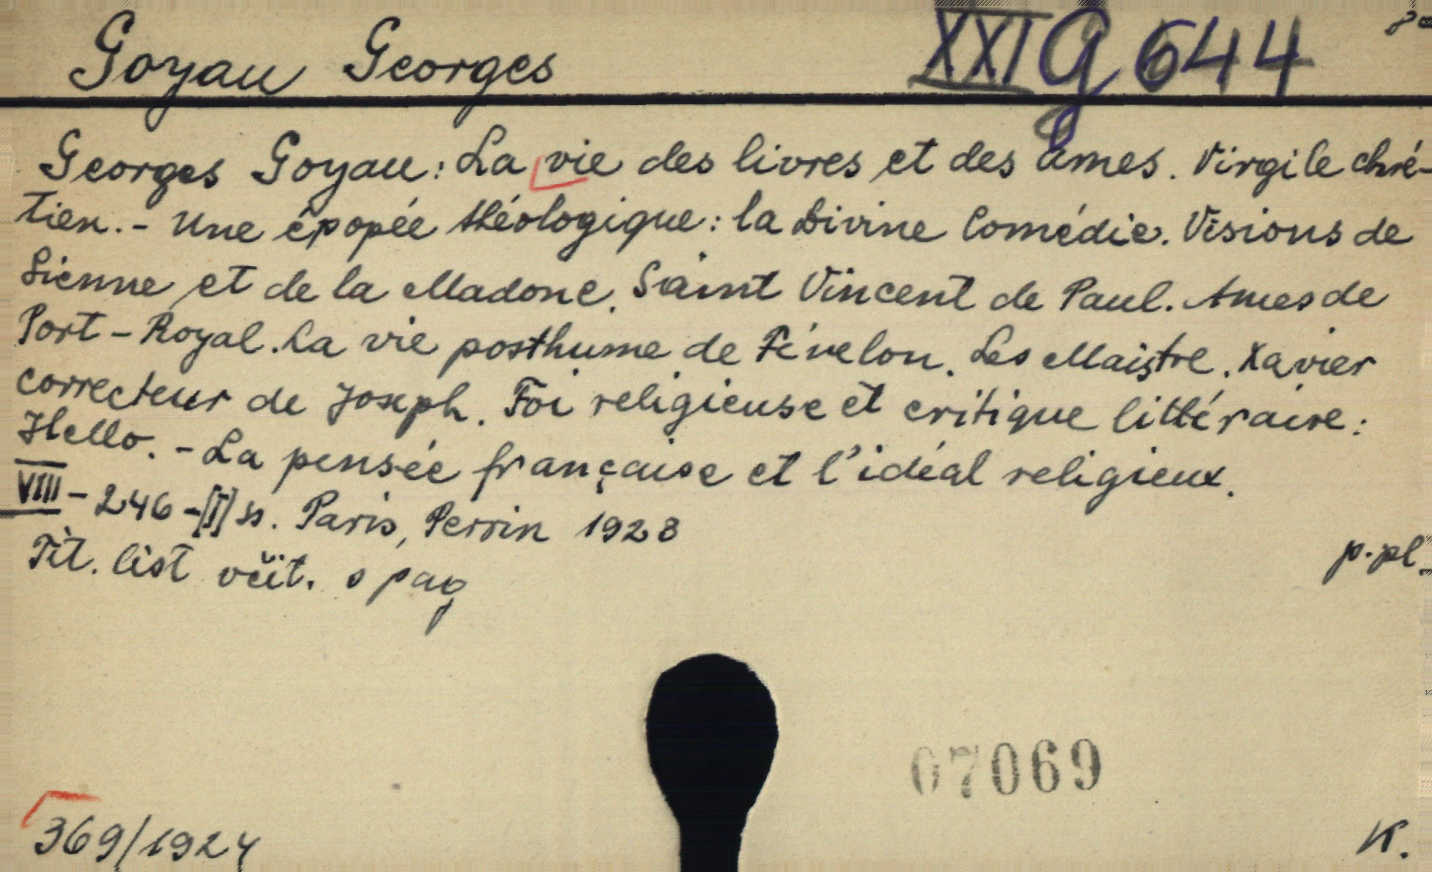 Goyau Georges
XXI G 644
8°
Georges Goyau: La vie des livres et des âmes. Virgile chré-
tien. - Une épopée théologique: la Divine Comédie. Visions de
Sienne et de la Madone. Saint Vincent de Paul. Ames de
Port-Royal. La vie posthume de Fénelon. Les Maistre. Xavier
correcteur de Joseph. Foi religieuse et critique littéraire:
Hello. - La pensée française et l'idéal religieux.
VIII - 246 - [I] ss. Paris, Perrin 1923
Tit. list včít. s pag
p. pl.
07069
369/1924
K.